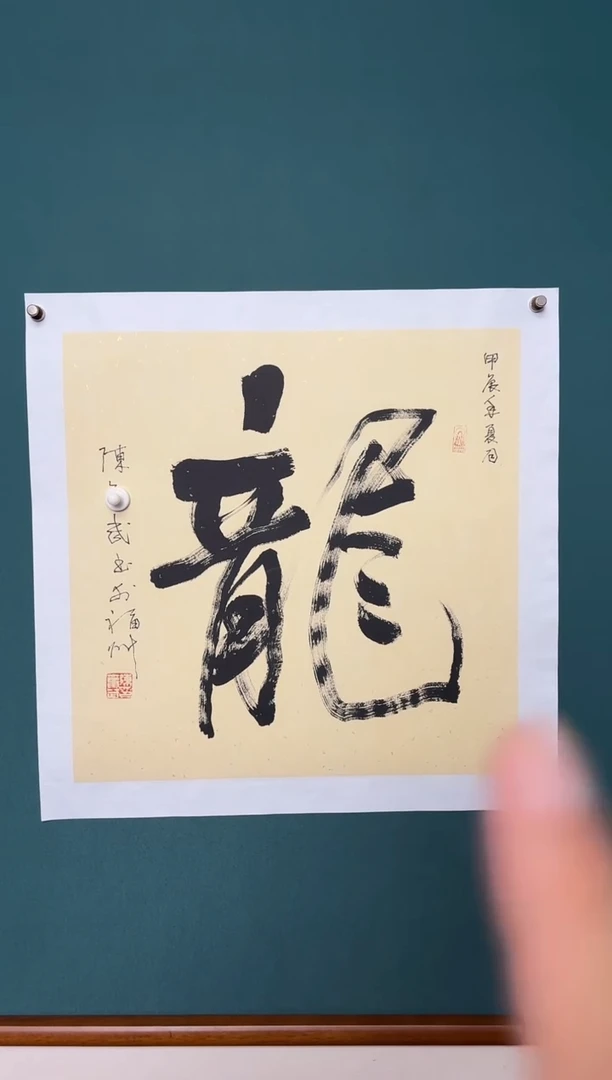 甲辰年夏月
龍
陳 武书於福州